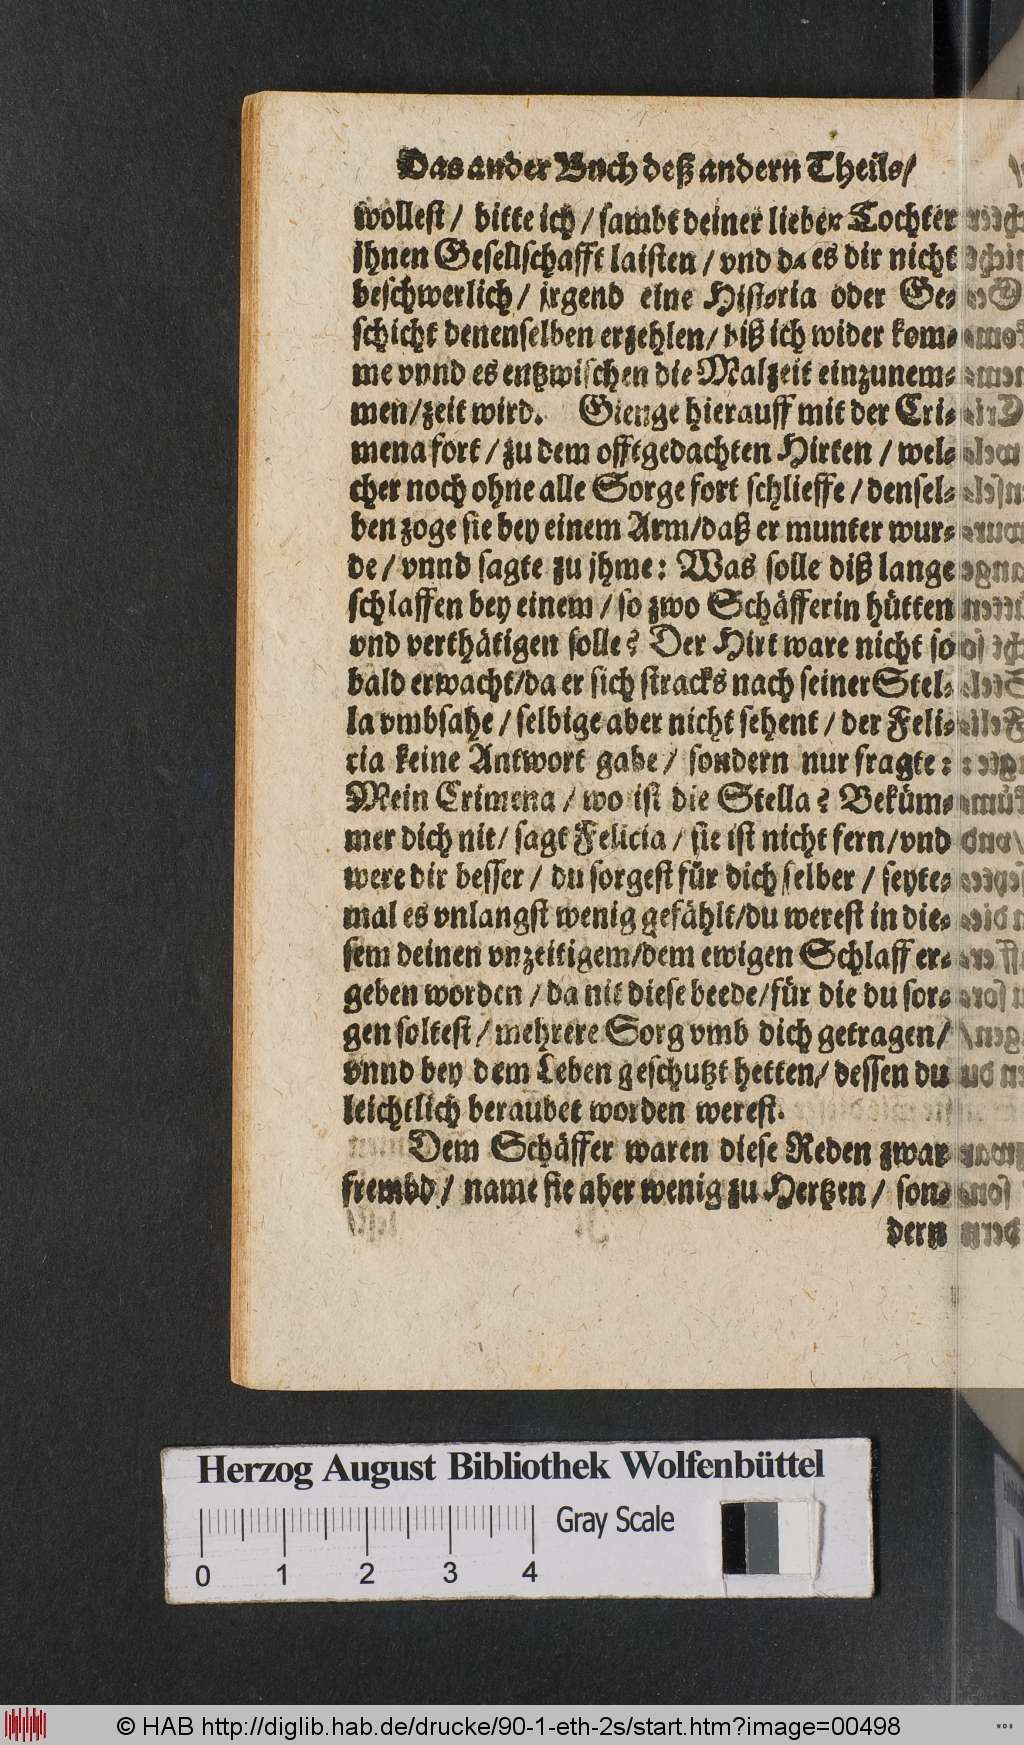 Das ander Buch deß andern Theils/
wollest/ bitte ich/ sambt deiner lieber Tochter
jhnen Gesellschafft laisten/ vnd da es dir nicht
beschwerlich/ jrgend eine Historia oder Ge-
schicht denenselben erzehlen/ biß ich wider kom-
me vnnd es entzwischen die Malzeit einzunem-
men/zeit wird. Gienge hierauff mit der Cri-
mena fort/ zu dem offtgedachten Hirten/ wel-
cher noch ohne alle Sorge fort schlieffe/ densel-
ben zoge sie bey einem Arm/daß er munter wur-
de/ vnnd sagte zu jhme: Was solle diß lange
schlaffen bey einem/ so zwo Schäfferin hütten
vnd verthätigen solle? Der Hirt ware nicht so
bald erwacht/da er sich stracks nach seiner Stel-
la vmbsahe/ selbige aber nicht sehent/ der Feli-
cia keine Antwort gabe/ sondern nur fragte:
Mein Crimena/ wo ist die Stella? Beküm-
mer dich nit/ sagt Felicia/ sie ist nicht fern/vnd
were dir besser/ du sorgest für dich selber/ seyte-
mal es vnlangst wenig gefählt/du werest in die-
sem deinen vnzeitigem/dem ewigen Schlaff er-
geben worden/ da nit diese beede/für die du sor-
gen soltest/ mehrere Sorg vmb dich getragen/
vnnd bey dem Leben geschutzt hetten/ dessen du
leichtlich beraubet worden werest.
Dem Schäffer waren diese Reden zwar
frembd/ name sie aber wenig zu Hertzen/ son-
dern
Herzog August Bibliothek Wolfenbüttel
Gray Scale
0 1 2 3 4
© HAB http://diglib.hab.de/drucke/90-1-eth-2s/start.htm?image=00498